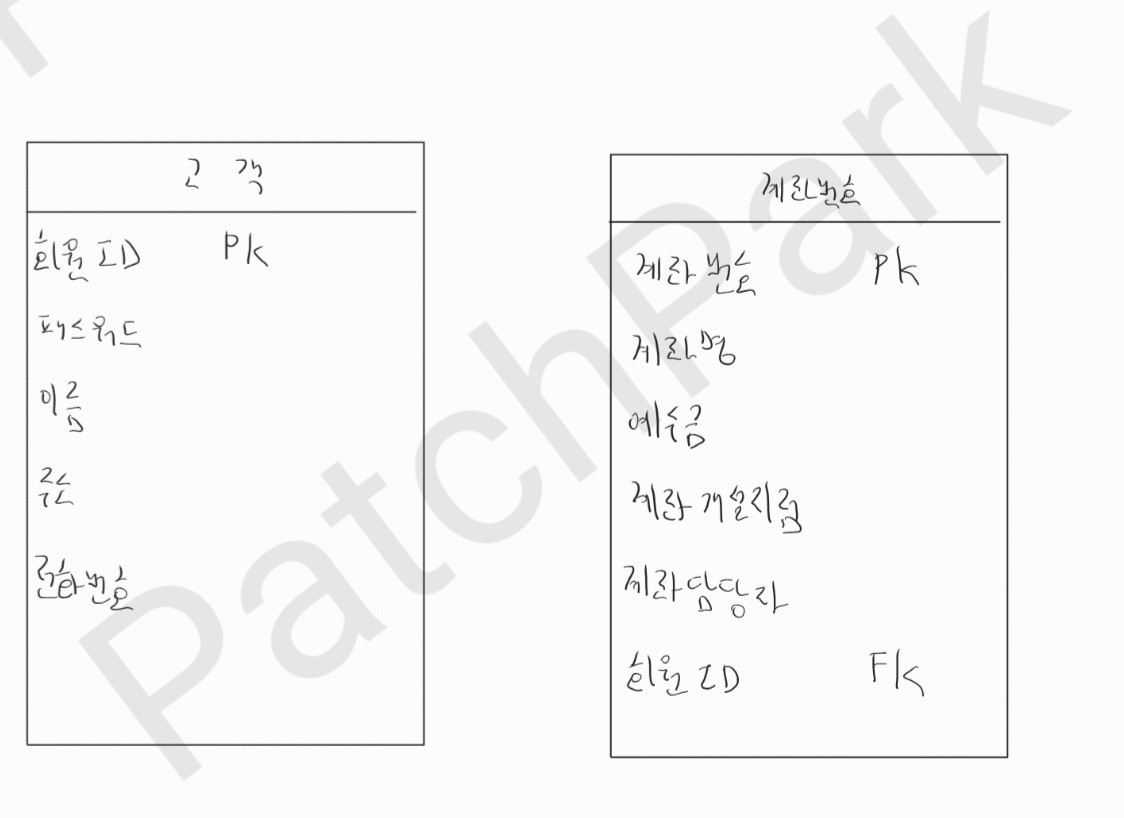 고객
회원 ID PK
패스워드
이름
주소
전화번호
계좌번호
계좌 번호 PK
계좌명
예수금
계좌 개설지점
계좌담당자
회원 ID FK
PatchPark